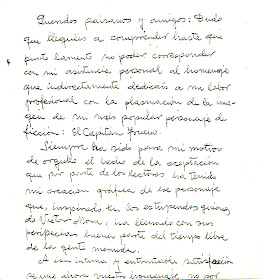 Queridos paisanos y amigos: Dudo
que lleguéis a comprender hasta que
punto lamento no poder corresponder
con mi asistencia personal al homenaje
que indirectamente dedicáis a mi labor
profesional con la plasmación de la ima-
gen de mi más popular personaje de
ficción: El Capitán Trueno.
Siempre ha sido para mi motivo
de orgullo el hecho de la aceptación
que por parte de los lectores ha tenido
mi creación gráfica de ese personaje
que, inspirado en los estupendos guiones
de Victor Mora, ha llenado con sus
peripecias buena parte del tiempo libre
de la gente menuda.
A esa íntima y entrañable satisfacción
se une ahora vuestro homenaje, no por